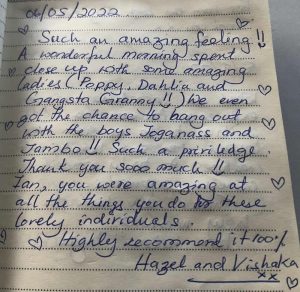 04/05/2022
Such an amazing feeling!!
A wonderful morning spent
close up with some amazing
ladies (Poppy, Dahlia and
Gangsta Granny!!) We even
got the chance to hang out
with the boys Joganass and
Jambo!! Such a priviledge.
Thank you sooo much!!
Ian, you were amazing at
all the things you do for these
lovely individuals.
Highly recommend it 100%
Hazel and Vishaka
xx